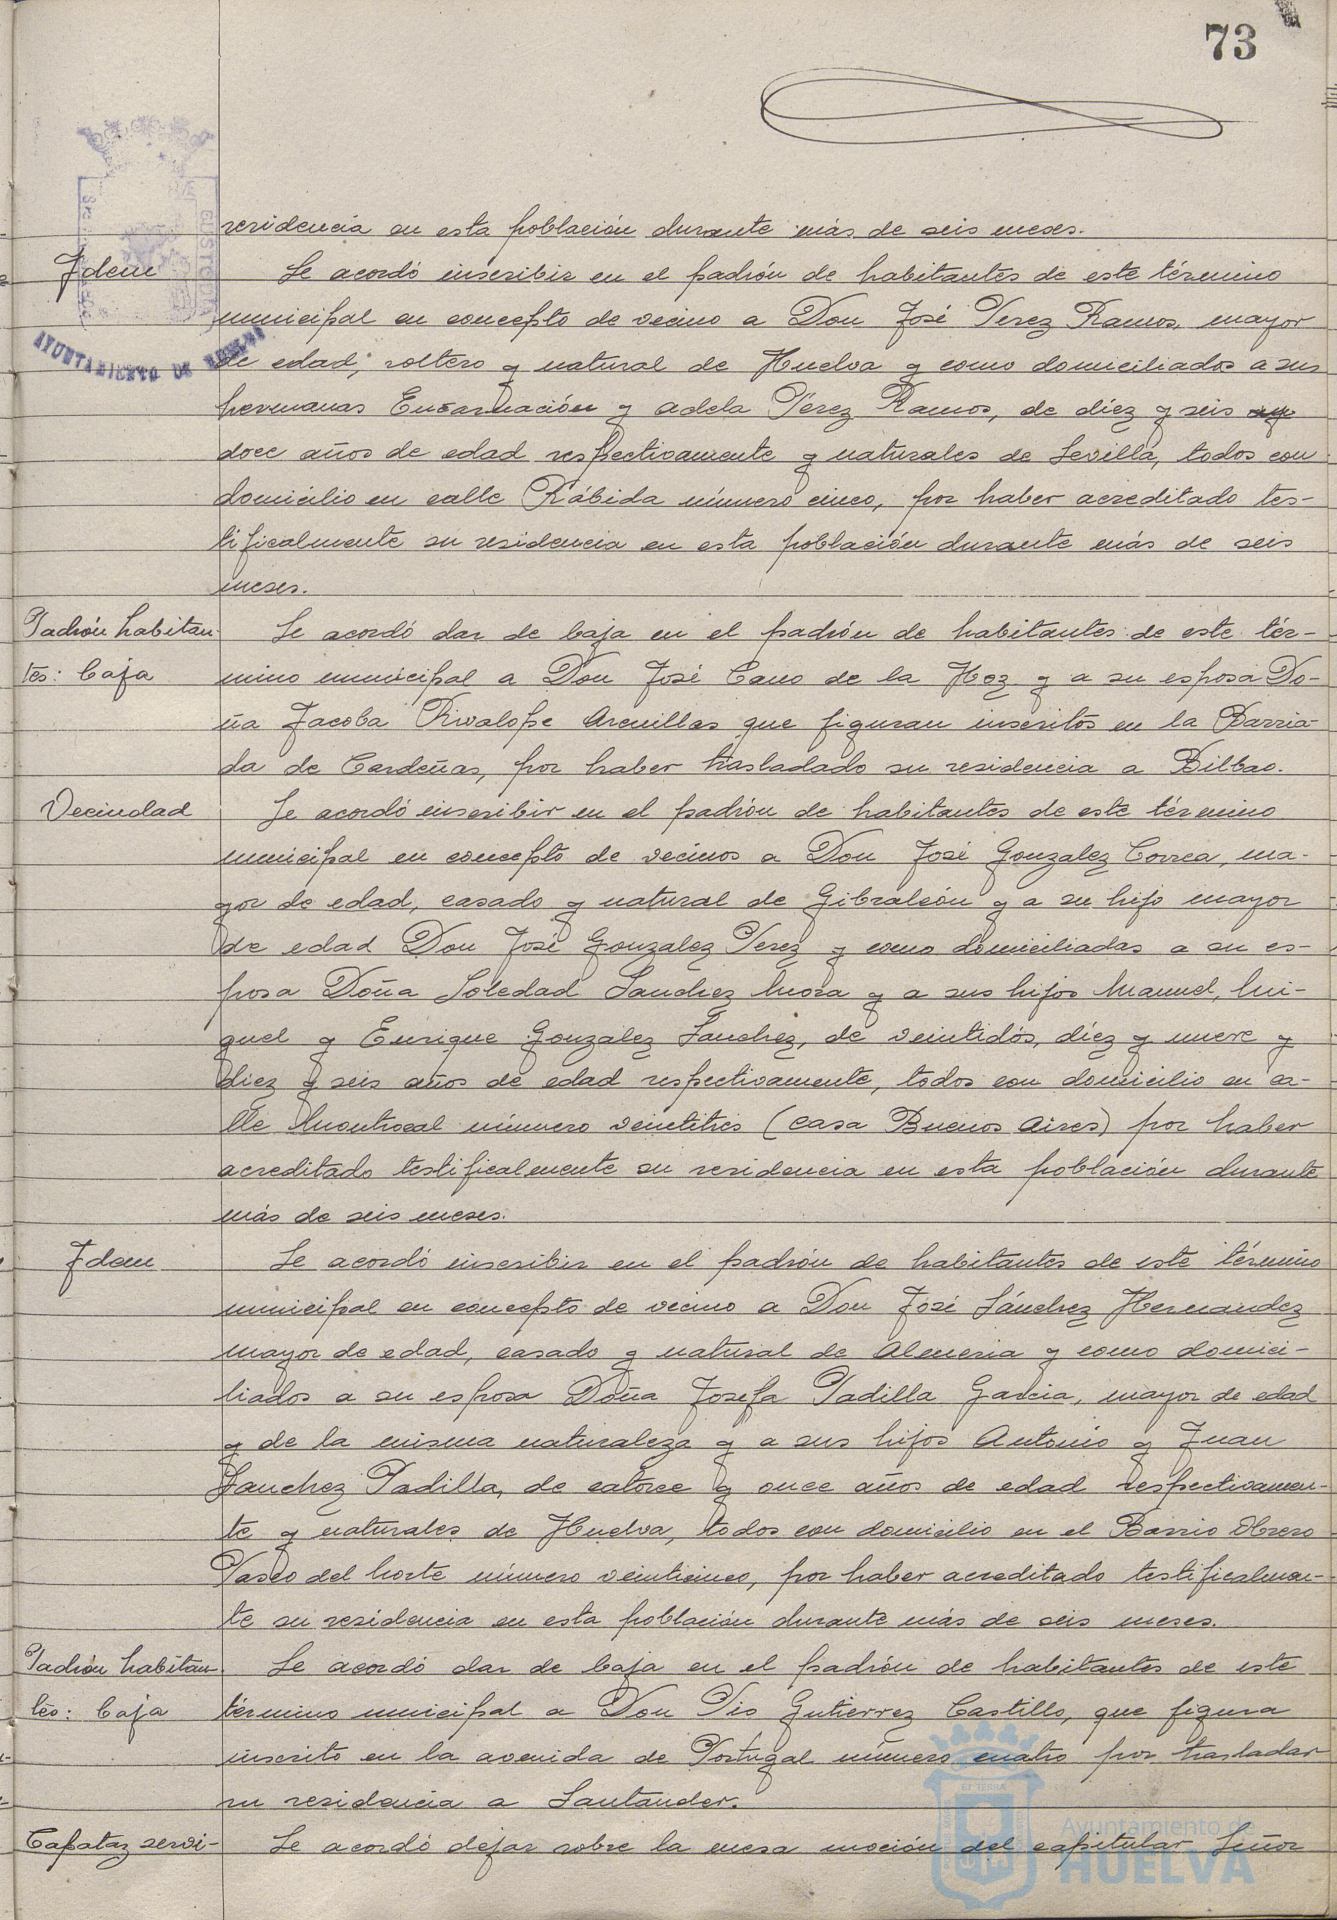 73
residencia en esta población durante más de seis meses.
Idem
Se acordó inscribir en el padrón de habitantes de este término
municipal en concepto de vecino a Don José Perez Ramos, mayor
de edad, soltero y natural de Huelva y como domiciliados a sus
hermanas Encarnación y Adela Pérez Ramos, de diez y seis
doce años de edad respectivamente y naturales de Sevilla, todos con
domicilio en calle Rábida número cinco, por haber acreditado tes-
tificalmente su residencia en esta población durante más de seis
meses.
Padrón habitan-
tes: baja
Se acordó dar de baja en el padrón de habitantes de este tér-
mino municipal a Don José Cano de la Hoz y a su esposa Do-
ña Jacoba que figuran inscritos en la Barria-
da de Cardeñas, por haber trasladado su residencia a Bilbao.
Vecindad
Se acordó inscribir en el padrón de habitantes de este término
municipal en concepto de vecinos a Don José Gonzalez Correa, ma-
yor de edad, casado y natural de Gibraleón y a su hijo mayor
de edad Don José Gonzalez Perez y como domiciliadas a su es-
posa Doña Soledad Sanchez Mora y a sus hijos Manuel, Mi-
guel y Enrique Gonzalez Sanchez, de veintidós, diez y nueve y
diez y seis años de edad respectivamente, todos con domicilio en ca-
lle Montrocal número veintitres (casa Buenos Aires) por haber
acreditado testificalmente su residencia en esta población durante
más de seis meses.
Idem
Se acordó inscribir en el padrón de habitantes de este término
municipal en concepto de vecino a Don José Sánchez Hernandez
mayor de edad, casado y natural de Almeria y como domici-
liados a su esposa Doña Josefa Padilla Garcia, mayor de edad
y de la misma naturaleza y a sus hijos Antonio y Juan
Sanchez Padilla, de catorce y once años de edad respectivamen-
te y naturales de Huelva, todos con domicilio en el Barrio Obrero
Paseo del Norte número veinticinco, por haber acreditado testificalmen-
te su residencia en esta población durante más de seis meses.
Padrón habitan-
tes: baja
Se acordó dar de baja en el padrón de habitantes de este
término municipal a Don Pio Gutierrez Castillo, que figura
inscrito en la avenida de Portugal número cuatro por trasladar
su residencia a Santander.
Capataz servi-
Se acordó dejar sobre la mesa moción del capitular Señor
AYUNTAMIENTO DE HUELVA
CUSTODIA
Ayuntamiento de
HUELVA